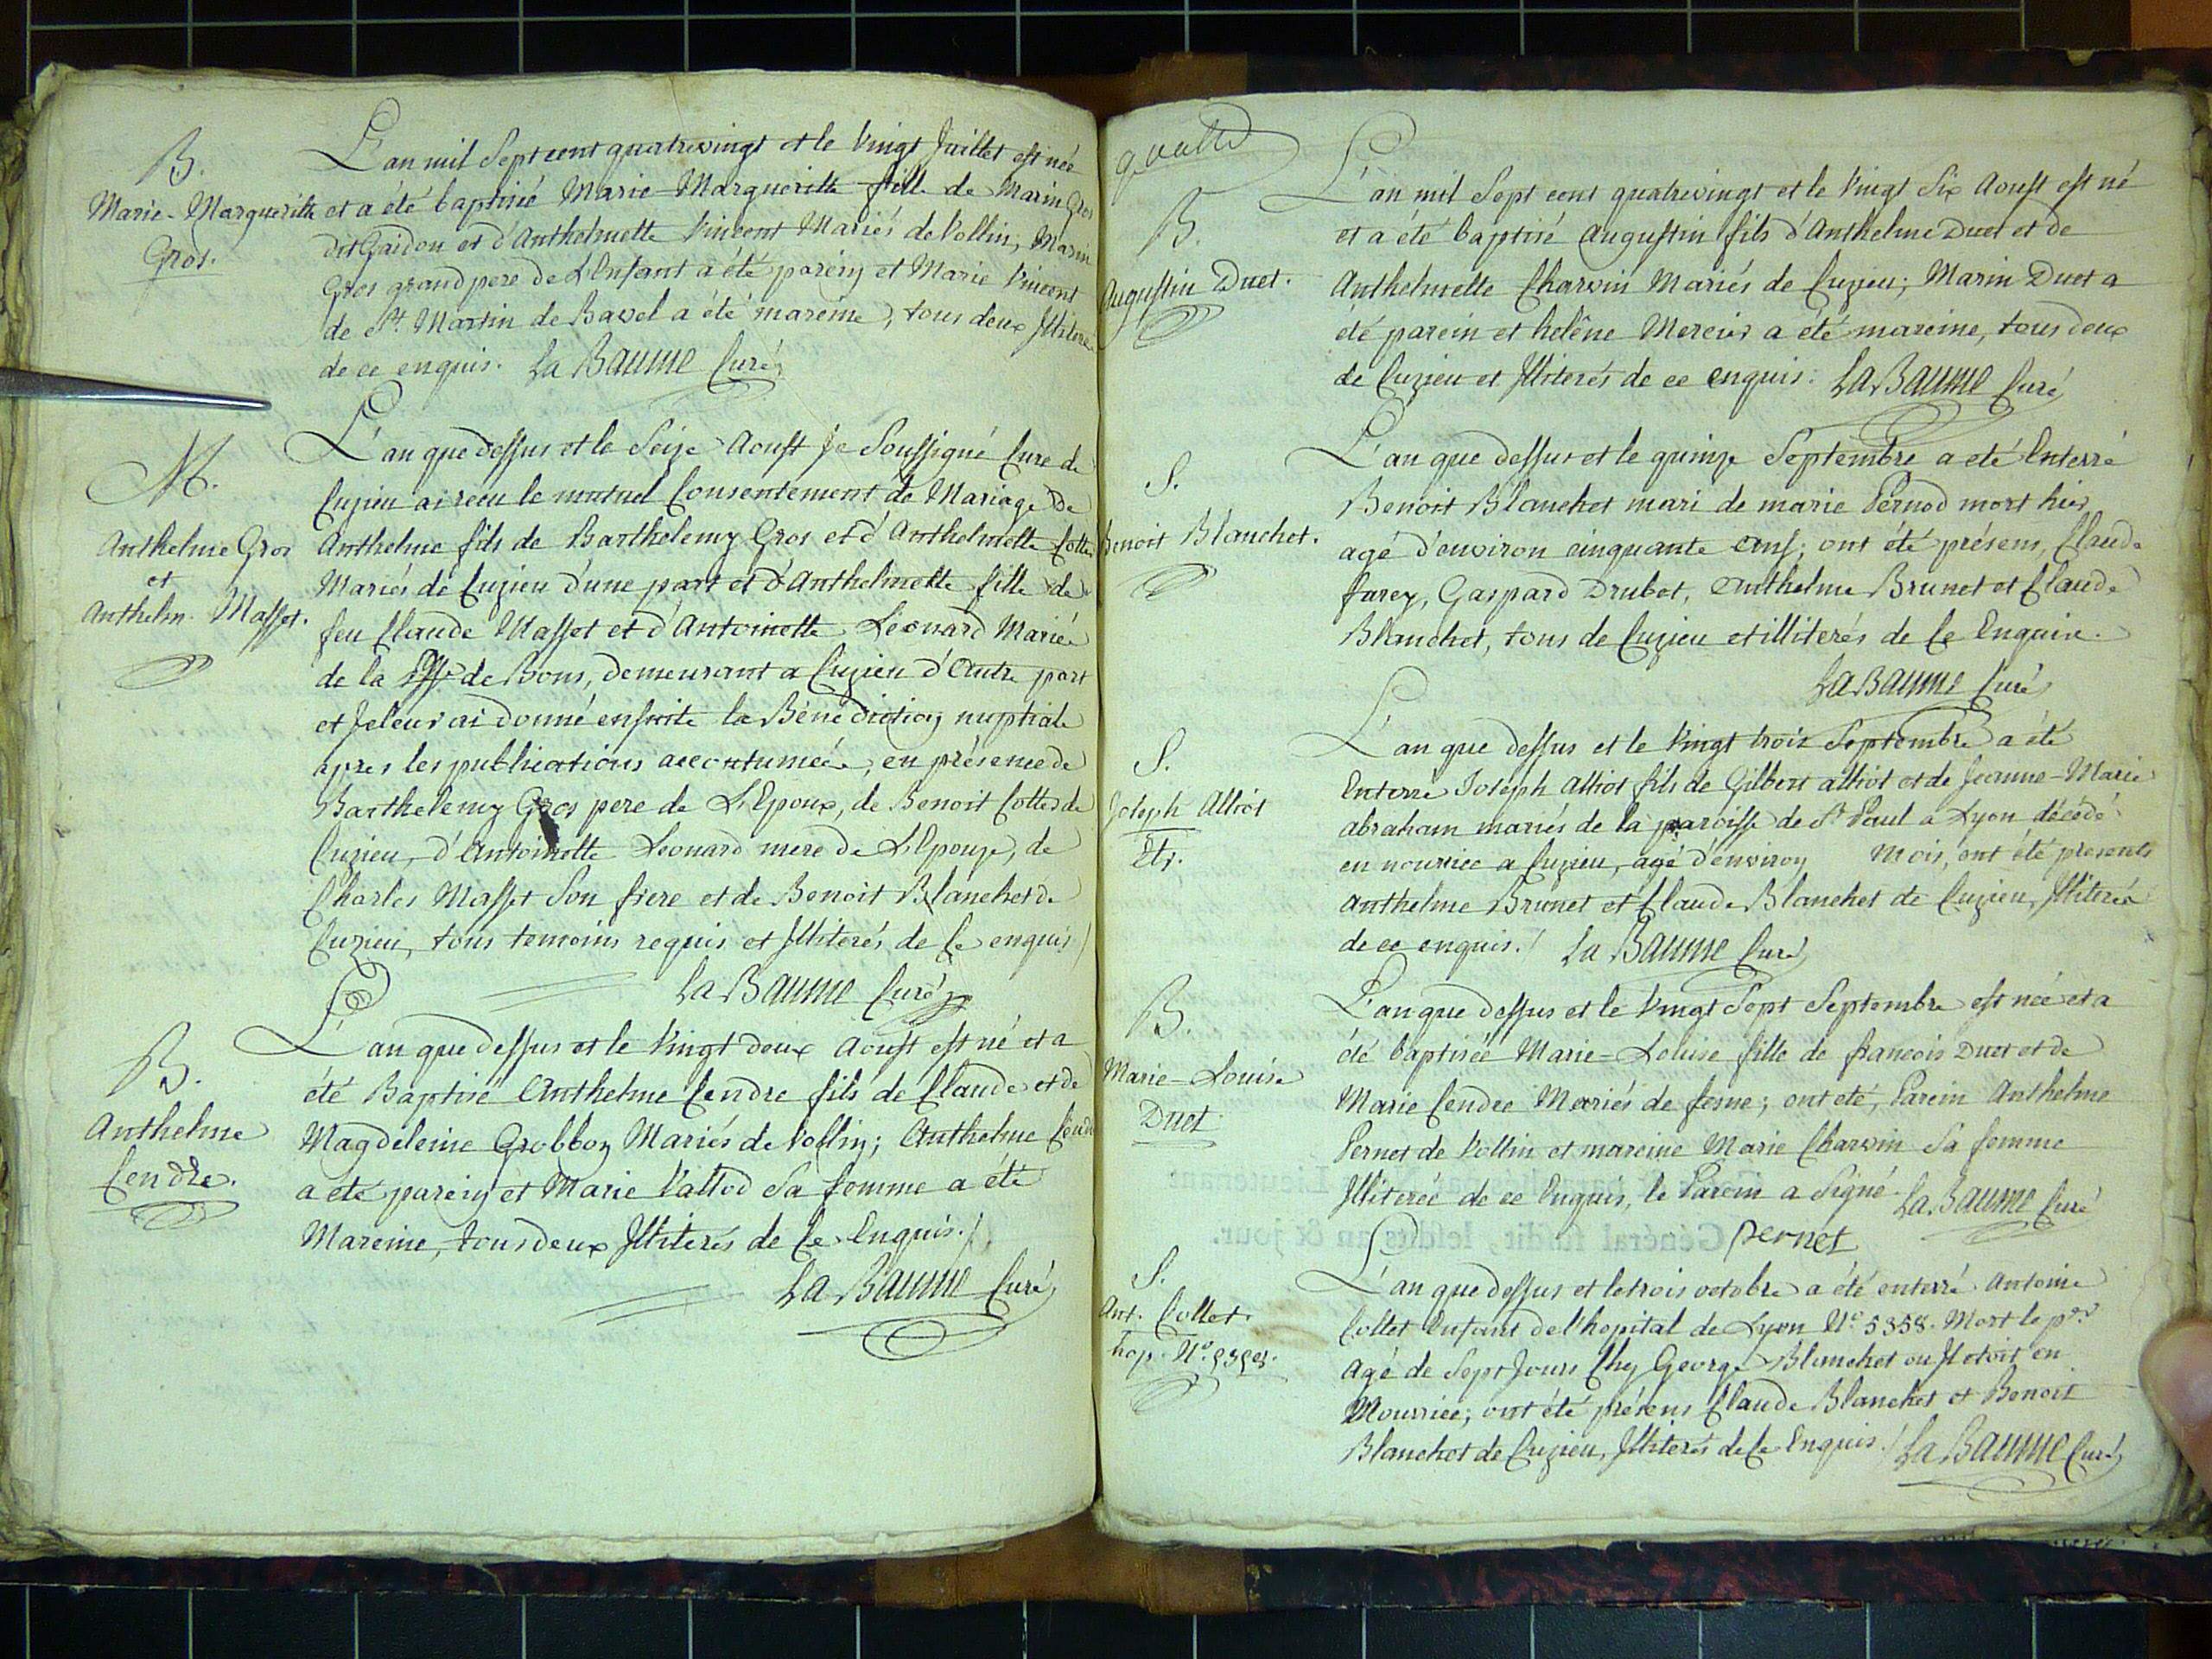 B.
Marie-Margueritte
Gros.
L'an mil Sept cent quatrevingt et le Vingt Juillet est née
et a été baptisée Marie-Margueritte fille de Marin Gros
dit Gaidon et d'Anthelmette Vincent Mariés de Vollin; Marin
Gros grand pere de L'Enfant a été parein et Marie Vincent
de St. Martin de Bavel a été mareine, tous deux Illiterés
de ce enquis. La Baume Curé
M.
Anthelme Gros
et
Anthelm. Masset.
L'an que dessus et le Seize Aoust Je Soussigné Cure de
Cuzieu ai recu le mutuel Consentement de Mariage De
Anthelme fils de Barthelemy Gros et d'Anthelmette Cottet
Mariés de Cuzieu d'une part et d'Anthelmette fille de
feu Claude Masset et d'Antoinette Leonard Mariés
de la de Bons, demeurant a Cuzieu d'Autre part
et Je leur ai donné ensuite la Bénédiction nuptiale
apres les publications accoutumées, en présence de
Barthelemy Gros pere de L'Epoux, de Benoit Cottet de
Cuzieu, d'Antoinette Leonard mere de L'Epouze, de
Charles Masset Son frere et de Benoit Blanchet de
Cuzieu, tous temoins requis et Illiterés de Ce enquis /
La Baume Curé
B.
Anthelme
Cendre.
L'an que dessus et le Vingt deux Aoust est né et a
été Baptisé Anthelme Cendre fils de Claude et de
Magdeleine Grobbon Mariés de Vollin; Anthelme Cendre
a été parein et Marie Vallod Sa femme a été
Mareine, tous deux Illiterés de Ce Enquis. /
La Baume Curé
quatre
B.
Augustin Duet.
L'an mil Sept cent quatrevingt et le Vingt Six Aoust est né
et a été baptisé Augustin fils d'Anthelme Duet et de
Anthelmette Charvin Mariés de Cuzieu; Marin Duet a
été parein et helêne Mercier a été mareine, tous deux
de Cuzieu et Illiterés de ce enquis. La Baume Curé
S.
Benoit Blanchet.
L'an que dessus et le quinze Septembre a eté Enterré
Benoit Blanchet mari de marie Pernod mort hier
agé d'environ cinquante ans; ont été présens, Claude
farey, Gaspard Drubet, Anthelme Brunet et Claude
Blanchet, tous de Cuzieu et illiterés de Ce Enquire.
La Baume Curé
S.
Joseph Alliot
Etr.
L'an que dessus et le Vingt trois Septembre a été
Enterré Joseph Alliot fils de Gilbert alliot et de Jeanne-Marie
abraham mariés de la paroisse de St Paul a Lyon décédé
en nourrice a Cuzieu, agé d'environ Mois, ont été présents
Anthelme Brunet et Claude Blanchet de Cuzieu, Illiterés
de ce enquis. / La Baume Curé
B.
Marie-Louise
Duet
L'an que dessus et le Vingt Sept Septembre est née et a
été baptisée Marie-Louise fille de francois Duet et de
Marie Cendre Mariés de fesne; ont eté, Parein Anthelme
Pernet de Vollin et mareine Marie Charvin Sa femme
Illiterée de ce Enquis, le Parein a Signé. La Baume Curé
Pernet
S.
Ant. Collet.
hop. N°. 5358.
L'an que dessus et le trois octobre a été enterré Antoine
Collet Enfant de l'hopital de Lyon N°. 5358. Mort le pr.
Agé de Sept Jours Chez George Blanchet ou Il etoit en
Nourrice; ont été présens Claude Blanchet et Benoit
Blanchet de Cuzieu, Illiterés de Ce Enquis. / La Baume Curé